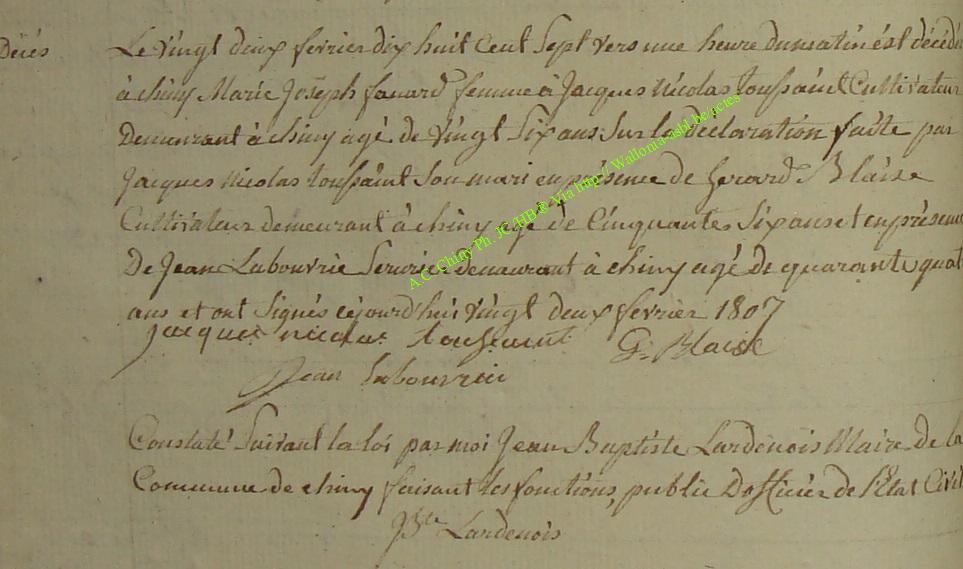 Décés
Le vingt deux fevrier dix huit Cent Sept vers une heure du matin ést décédé
à chiny Marie Joseph fanard femme à Jacques Nicolas toussaint Cultivateur
Demeurant à chiny agé de vingt Six ans Sur la déclaration faite par
Jacques Nicolas toussaint Son mari en présence de Gerard Blaise
Cultivateur demeurant à chiny agé de Cinquantes Six ans et en présence
De Jean Labouvrie demeurant à chiny agé de quarante quat
ans et ont Signés cejourd'hui vingt deux fevrier 1807
jacque nicolas touseaint G: Blaise
Jean labouvrie
Constaté Suivant la loi par moi Jean Baptiste Lardenois Maire de la
Commune de chiny faisant les fonctions public Dofficier de l'Etat Civil
Lardenois
A.C. Chiny Ph. JC-HB © Via http://Wallonia-asbl.be/actes